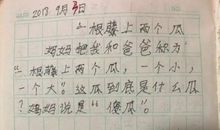 2013 9月3日
一根藤上两个瓜
妈妈把我和爸爸称为
“一根藤上两个瓜，一个小，
一个大”。这瓜到底是什么瓜
？妈妈说是“傻瓜”。